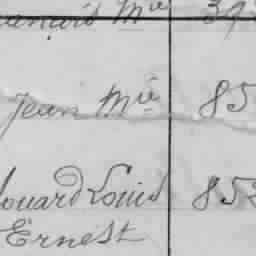 Mie 39
Jean Mie 85
ouard Louis 85
Ernest